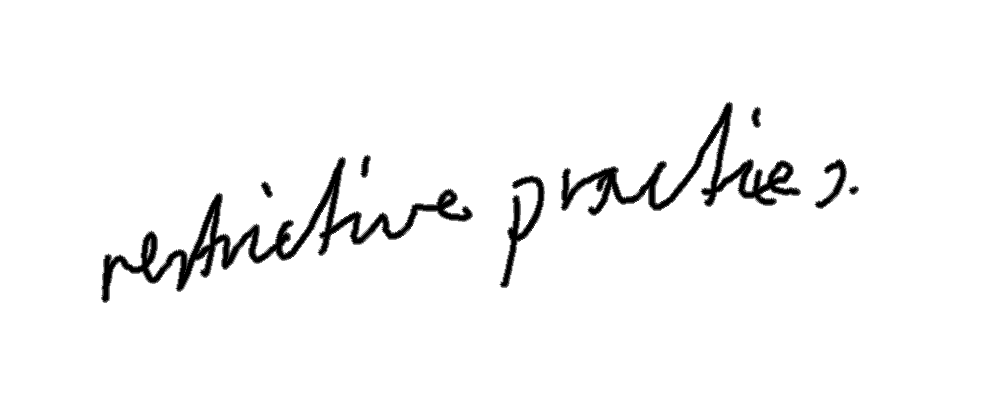 restrictive practices.